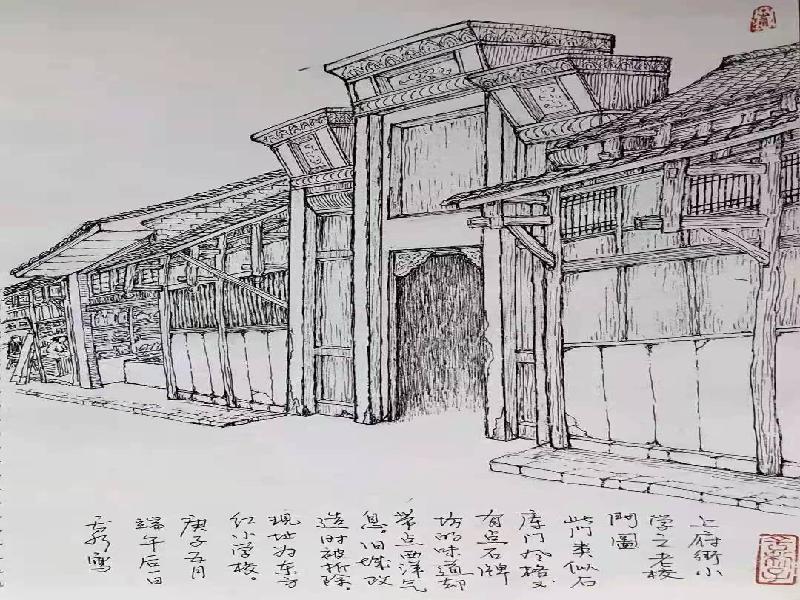 上府街小
学之老校
门圖
此门类似石
库门风格又
有点石牌
坊的味道却
带点西洋气
息旧城改
造时被拆除。
现址为东方
红小学校。
庚子五月
端午后一日
寫